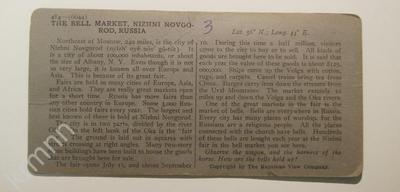 484—(6042)
THE BELL MARKET, NIZHNI NOVGO-
ROD, RUSSIA
Northeast of Moscow, 240 miles, is the city of
Nizhni Novgorod
It is a city of about 100,000 inhabitants, or about
the size of Albany, N. Y. Even though it is not
so very large, it is known all over Europe and
Asia. This is because of its great fair.
Fairs are held in many cities of Europe, Asia,
and Africa. They are really great markets open
for a short time. Russia has more fairs than
any other country in Europe. Some 3,000 Rus-
sian cities hold fairs every year. The largest and
best known of these is held at Nizhni Novgorod.
The city is in two parts, divided by the river
Oka. On the left bank of the Oka is the "fair
city." The ground is laid out in squares with
streets crossing at right angles. Many two-story
buildings have been built to house the goods
that are brought here for sale.
The fair opens July 15, and closes September
3
Lat. 56° N.; Long. 44° E.
10. During this time a half million visitors
come to the city to buy or to sell. All kinds of
goods are brought here to be sold. It is said that
each year the value of these goods is about $125,
000,000. Ships carry up the Volga with cotton,
rugs, and carpets. Camel trains bring tea from
China. Barges carry iron down the streams from
the Ural Mountains. The market extends to
miles up and down the Volga and the Oka rivers.
One of the greatest markets in the fair is the
market of bells. Bells are everywhere in Russia.
Every city has many places of worship. For the
Russians are a religious people. All the places
connected with the church have bells. Hundreds
of these bells are bought each year at the Nizhni
fair in the bell market you see here.
Observe the wagon, and the harness of the
horse. How are the bells held up?
Copyright by The Keystone View Company.